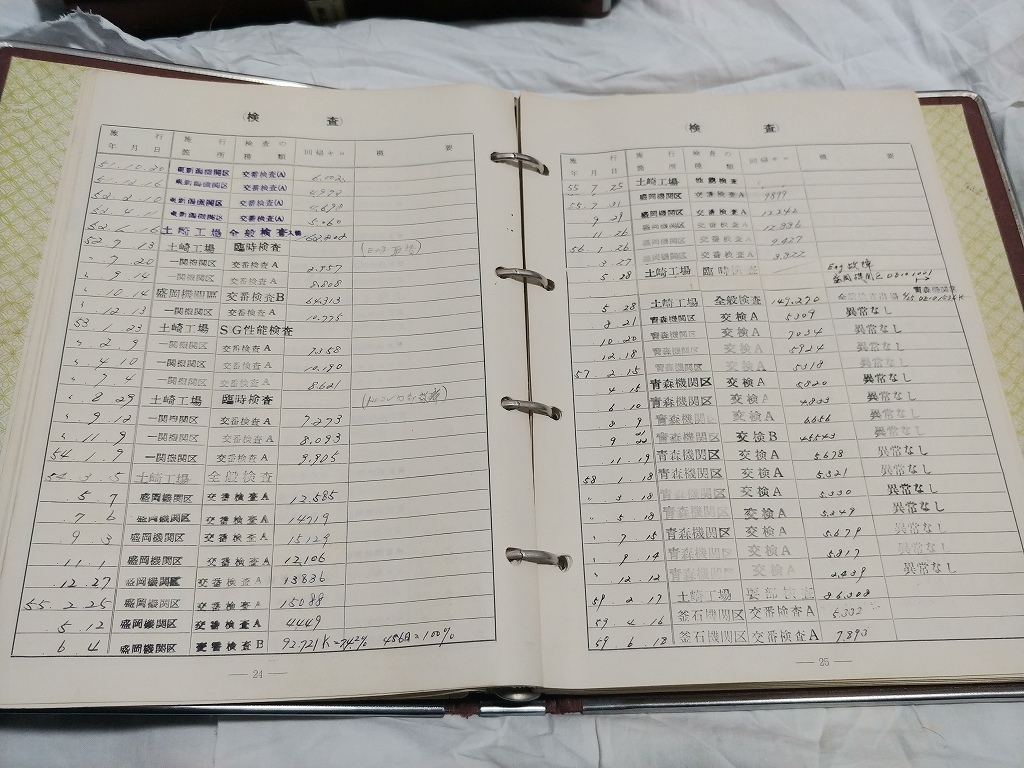 検 査
施 行 年 月 日 施 行 箇 所 検 査 の 種 類 回帰キロ 概 要
51.10.20 東新潟機関区 交番検査(A) 6,002
51.12.16 東新潟機関区 交番検査(A)
52.2.10 東新潟機関区 交番検査(A)
52.4.11 東新潟機関区 交番検査(A) 5,060
52.6.16 土崎工場 全般検査
52.9.13 土崎工場 臨時検査
〃.9.20 一関機関区 交番検査A 2,957
〃.9.14 一関機関区 交番検査A 8,808
〃.10.14 盛岡機関区 交番検査B 64,313
〃.12.13 一関機関区 交番検査A 10,775
53.1.23 土崎工場 SG性能検査
〃.2.9 一関機関区 交番検査A 7,358
〃.4.10 一関機関区 交番検査A 10,190
〃.7.4 一関機関区 交番検査A 8,621
〃.8.29 土崎工場 臨時検査
〃.9.12 一関機関区 交番検査A 7,273
〃.11.9 一関機関区 交番検査A 8,093
54.1.9 一関機関区 交番検査A 9,905
54.3.5 土崎工場 全般検査
5.7 盛岡機関区 交番検査A 12,585
7.6 盛岡機関区 交番検査A 14719
9.3 盛岡機関区 交番検査A 15129
11.1 盛岡機関区 交番検査A 12,106
12.27 盛岡機関区 交番検査A 13836
55.2.25 盛岡機関区 交番検査A 15088
5.12 盛岡機関区 交番検査A 4449
6.4 盛岡機関区 交番検査B 92,721K=242% 456A=100%
— 24 —
検 査
施 行 年 月 日 施 行 箇 所 検 査 の 種 類 回帰キロ 概 要
55.7.25 土崎工場 性能検査
55.7.31 盛岡機関区 交番検査A 9899
9.29 盛岡機関区 交番検査A 12242
11.26 盛岡機関区 交番検査A 12936
56.1.26 盛岡機関区 交番検査A 9427
3.27 盛岡機関区 交番検査A 3322
5.28 土崎工場 臨時検査 Eng故障 盛岡機関区
5.28 土崎工場 全般検査 149,270 青森機関区
8.21 青森機関区 交検A 5309 異常なし
10.20 青森機関区 交検A 7034 異常なし
12.18 青森機関区 交検A 5924 異常なし
57.2.15 青森機関区 交検A 5318 異常なし
4.15 青森機関区 交検A 5820 異常なし
6.10 青森機関区 交検A 4833 異常なし
8.9 青森機関区 交検A 6656 異常なし
9.21 22 青森機関区 交検B 45543 異常なし
11.19 青森機関区 交検A 5,678 異常なし
58.1.18 青森機関区 交検A 5,321 異常なし
〃.3.18 青森機関区 交検A 5,330 異常なし
〃.5.18 青森機関区 交検A 5,349 異常なし
〃.7.15 青森機関区 交検A 5,679 異常なし
〃.9.14 青森機関区 交検A 5,817 異常なし
〃.12.12 青森機関区 交検A 2,439 異常なし
59.2.17 土崎工場 要部検査 86,308
59.4.16 釜石機関区 交番検査A 5,332
59.6.18 釜石機関区 交番検査A 7,893
— 25 —